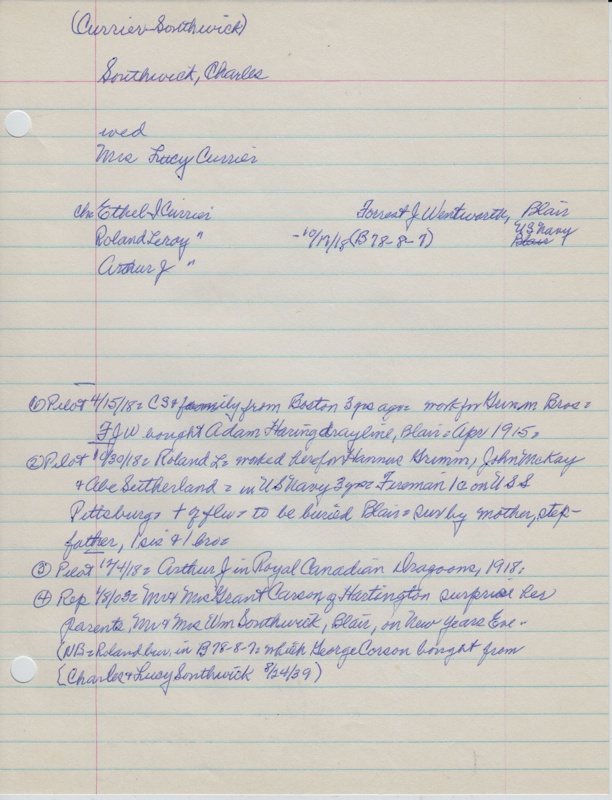 (Currier-Southwick)
Southwick, Charles
wed
Mrs Lucy Currier
chn Ethel I Currier Forrest J Wentworth, Blair
Roland Leroy " -10/17/18 (B 78-8-7) US Navy
Arthur J " Blair
① Pilot 4/15/18= CS & family from Boston 3 yrs ago= work for Grimm Bros=
FJW bought Adam Haring drayline, Blair= Apr 1915=
② Pilot 10/30/18= Roland L= worked here for Hannus Grimm, John McKay
+ Abe Sutherland = in US Navy 3 yrs= Fireman 1c on USS
Pittsburg= + of flu= to be buried Blair= sur by mother, step-
father, 1 sis & 1 bro=
③ Pilot 12/4/18= Arthur J in Royal Canadian Dragoons, 1918=
④ Rep 1/8/03= Mr & Mrs Grant Carson of Hartington surprise her
parents, Mr & Mrs Wm Southwick, Blair, on New Years Eve-
(NB= Roland bur. in B 78-8-7= which George Corson bought from
[Charles & Lucy Southwick 8/24/39)